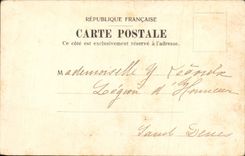 RÉPUBLIQUE FRANÇAISE
CARTE POSTALE
Ce côté est exclusivement réservé à l'adresse.
Mademoiselle Y
Légion d'Honneur
Saint Denis